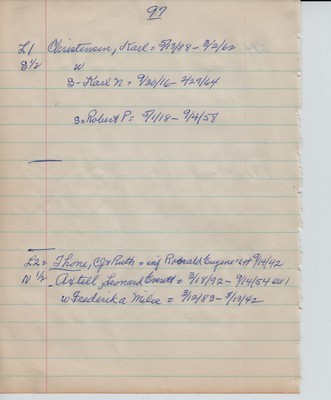 97
L1 Christensen, Karl = 5/13/88 - 3/2/62
S 1/2 W
S - Karl N = 9/20/16 - 2/29/64
S = Robert P = 5/1/18 - 9/4/58
L2 = Thone, CJ & Ruth = inf Ronald Eugene 9/14/42
N 1/2 Axtell, Leonard Everett = 3/18/92 - 9/14/54 WW1
W Frederika Milve = 3/12/89 - 8/13/42